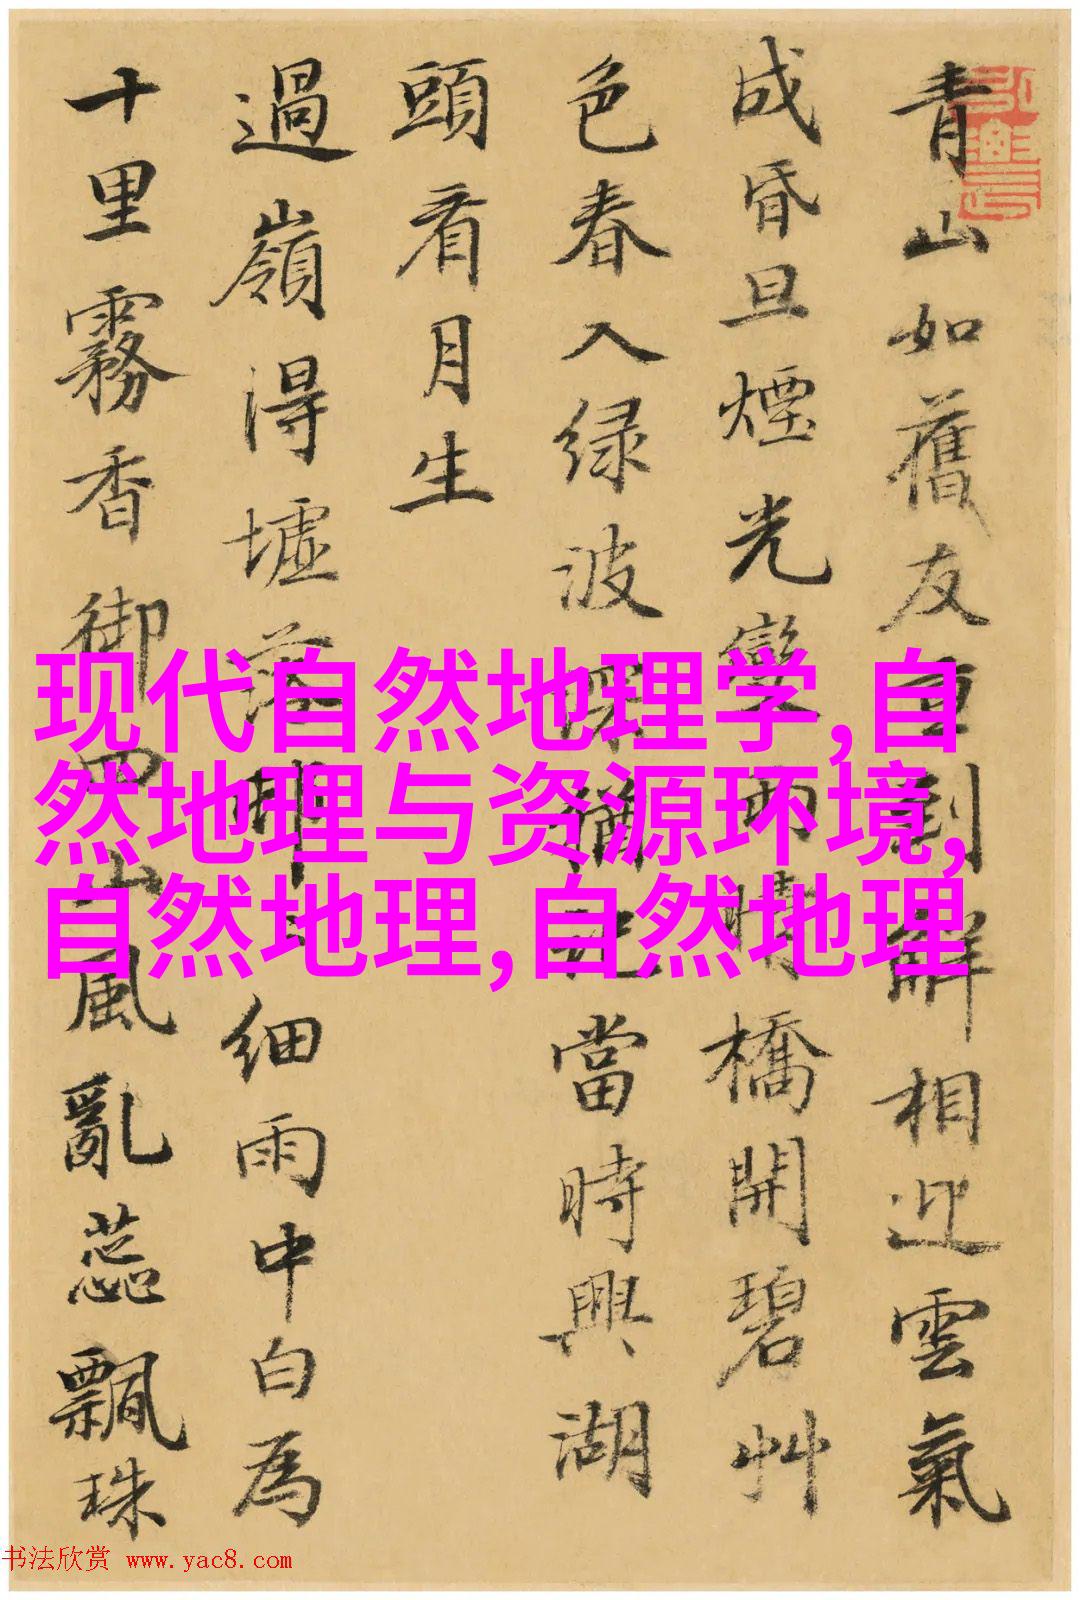 青山如舊友重到解相迎雲氣
成昏旦煙光變雨晴橋開碧艸
色春入绿波深猶記當時興湖
頭看月生
過嶺得墟落
細雨中白為
十里霧香御四山風亂蕊飄珠
现代自然地理学,自
然地理与资源环境,
自然地理,自然地理
书法欣赏 www.yac8.com